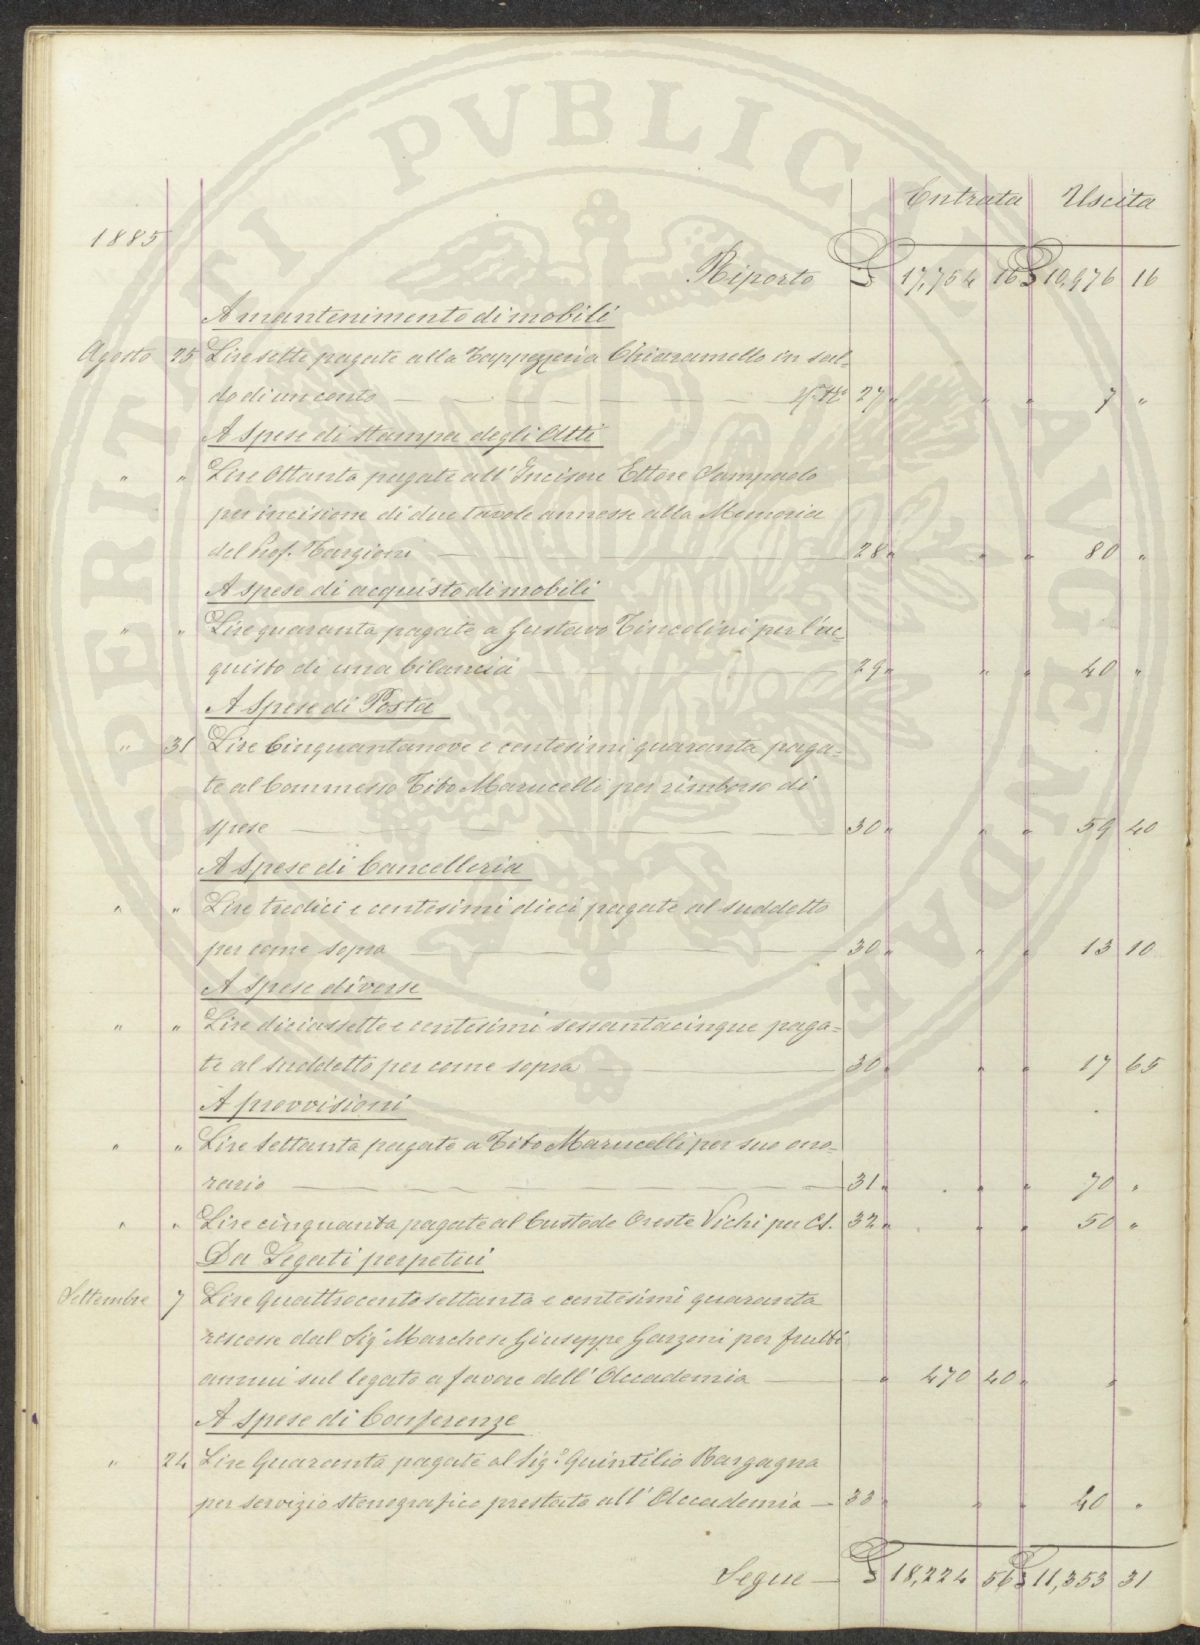 PROSPERITATI PVBLICAE AVGENDAE
Entrata Uscita
1885
Riporto £ 17,754 16 £ 10,976 16
A mantenimento di mobili
Agosto 25 Lire sette pagate alla Tappezzeria Chiaramello in sal-
do di un conto — 27 " " " 7 "
A Spese di stampa degli Atti
" " Lire Ottanta pagate all'Incisore Ettore Sampaolo
per incisione di due tavole annesse alla Memoria
del Prof. Targioni — 28 " " " 80 "
A spese di acquisto di mobili
" " Lire quaranta pagate a Gustavo Tincolini per l'ac-
quisto di una bilancia — 29 " " " 40 "
A Spese di Posta
" 31 Lire Cinquantanove e centesimi quaranta paga-
te al Commesso Tito Marucelli per rimborso di
spese — 30 " " " 59 40
A Spese di Cancelleria
" " Lire tredici e centesimi dieci pagate al suddetto
per come sopra — 30 " " " 13 10
A Spese diverse
" " Lire diciassette e centesimi sessantacinque paga-
te al suddetto per come sopra — 30 " " " 17 65
A provvisioni
" " Lire Settanta pagate a Tito Marucelli per suo ono-
rario — 31 " " " 70 "
" " Lire cinquanta pagate al Custode Oreste Vichi per Cs. 32 " " " 50 "
Da Legati perpetui
Settembre 7 Lire Quattrocentosettanta e centesimi quaranta
riscosse dal Sigr Marchese Giuseppe Garzoni per frutti
annui sul legato a favore dell'Accademia — " 470 40 " "
A Spese di Conferenze
" 24 Lire Quaranta pagate al Sigr Quintilio Bargagna
per servizio stenografico prestato all'Accademia — 33 " " " 40 "
Segue — £ 18,224 56 £ 11,353 31